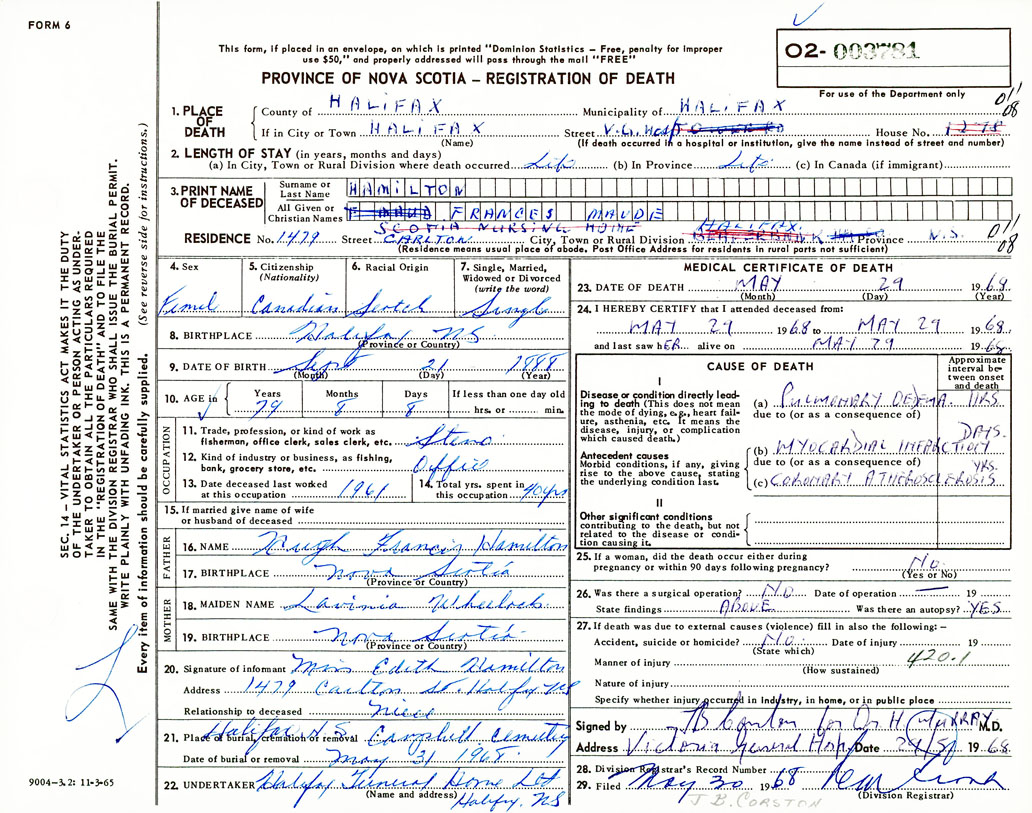 FORM 6
This form, if placed in an envelope, on which is printed "Dominion Statistics – Free, penalty for improper
use $50," and properly addressed will pass through the mail "FREE"
O2- 003781
PROVINCE OF NOVA SCOTIA – REGISTRATION OF DEATH
For use of the Department only
011
08
1. PLACE OF DEATH County of HALIFAX Municipality of HALIFAX
If in City or Town HALIFAX Street V.G. Hosp House No. 1278
(Name) (If death occurred in a hospital or institution, give the name instead of street and number)
2. LENGTH OF STAY (in years, months and days)
(a) In City, Town or Rural Division where death occurred Life (b) In Province Life (c) In Canada (if immigrant)
3. PRINT NAME OF DECEASED Surname or Last Name HAMILTON
All Given or Christian Names FRANCES MAUDE
SCOTIA NURSING HOME HALIFAX
RESIDENCE No. 1479 Street CARLTON City, Town or Rural Division Province N.S. 011
08
(Residence means usual place of abode. Post Office Address for residents in rural parts not sufficient)
4. Sex 5. Citizenship (Nationality) 6. Racial Origin 7. Single, Married, Widowed or Divorced (write the word)
Female Canadian Scotch Single
8. BIRTHPLACE Halifax NS
(Province or Country)
9. DATE OF BIRTH Sept 21 1888
(Month) (Day) (Year)
10. AGE in Years Months Days If less than one day old
79 8 8 hrs. or min.
OCCUPATION
11. Trade, profession, or kind of work as
fisherman, office clerk, sales clerk, etc. Steno
12. Kind of industry or business, as fishing,
bank, grocery store, etc. Office
13. Date deceased last worked
at this occupation 1961
14. Total yrs. spent in
this occupation 40 yrs
15. If married give name of wife
or husband of deceased
FATHER
16. NAME Hugh Francis Hamilton
17. BIRTHPLACE Nova Scotia
(Province or Country)
MOTHER
18. MAIDEN NAME Lavinia Wheelock
19. BIRTHPLACE Nova Scotia
(Province or Country)
20. Signature of informant Miss Edith Hamilton
Address 1479 Carlton St. Halifax NS
Relationship to deceased Niece
21. Place of burial, cremation or removal Halifax N.S. Camphill Cemetery
Date of burial or removal May 31 1968
22. UNDERTAKER Halifax Funeral Home Ltd
(Name and address) Halifax, NS
MEDICAL CERTIFICATE OF DEATH
23. DATE OF DEATH MAY 29 1968
(Month) (Day) (Year)
24. I HEREBY CERTIFY that I attended deceased from:
MAY 29 1968 to MAY 29 1968
and last saw hER alive on MAY 29 1968
CAUSE OF DEATH
Approximate interval between onset and death
I
Disease or condition directly leading
to death (This does not mean
the mode of dying, e.g., heart failure,
asthenia, etc. It means the
disease, injury, or complication
which caused death.)
(a) PULMONARY OEDEMA HRS
due to (or as a consequence of)
Antecedent causes
Morbid conditions, if any, giving
rise to the above cause, stating
the underlying condition last.
(b) MYOCARDIAL INFARCTION DAYS
due to (or as a consequence of)
(c) CORONARY ATHEROSCLEROSIS YRS.
II
Other significant conditions
contributing to the death, but not
related to the disease or condition
causing it.
25. If a woman, did the death occur either during
pregnancy or within 90 days following pregnancy? No
(Yes or No)
26. Was there a surgical operation? NO Date of operation — 19
State findings ABOVE Was there an autopsy? YES
27. If death was due to external causes (violence) fill in also the following: –
Accident, suicide or homicide? No. Date of injury 19
(State which)
Manner of injury 420.1
(How sustained)
Nature of injury
Specify whether injury occurred in industry, in home, or in public place
Signed by JB Corston for Dr H MURRAY M.D.
Address Victoria General Hosp Date 29/5/ 1968
28. Division Registrar's Record Number
29. Filed May 30 1968
(Division Registrar)
J B. CORSTON
SEC. 14 – VITAL STATISTICS ACT MAKES IT THE DUTY
OF THE UNDERTAKER OR PERSON ACTING AS UNDERTAKER
TO OBTAIN ALL THE PARTICULARS REQUIRED
IN THE "REGISTRATION OF DEATH" AND TO FILE THE
SAME WITH THE DIVISION REGISTRAR WHO SHALL ISSUE THE BURIAL PERMIT.
WRITE PLAINLY WITH UNFADING INK. THIS IS A PERMANENT RECORD.
Every item of information should be carefully supplied. (See reverse side for instructions.)
9004–3.2: 11-3-65